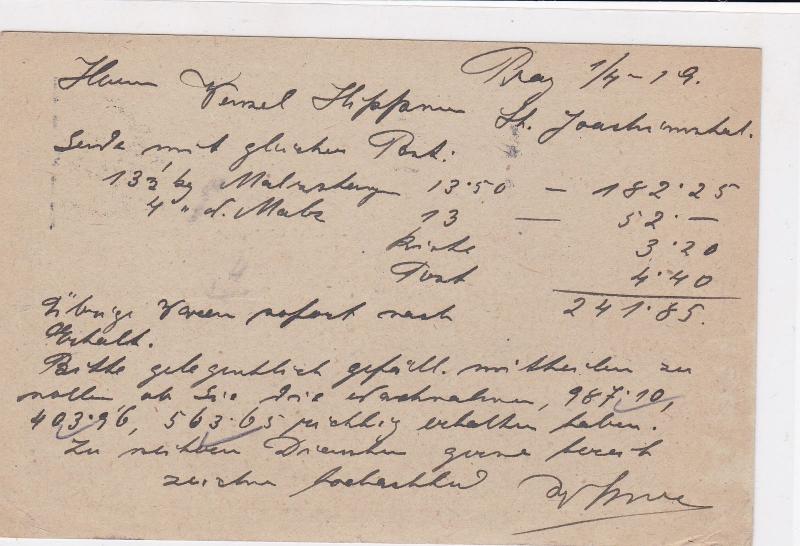 Prag 1/4 - 19.
Herrn Wenzel
St. Joachimsthal.
Sende mit gleicher Post:
13 1/2 kg 13·50 — 182·25
4 " d. 13 — 52·—
Kiste 3·20
Post 4·40
241·85.
Übrige Waren sofort nach
Erhalt.
Bitte gelegentlich gefäll. mittheilen zu
wollen ob Sie die Nachnahmen, 987·10,
403·96, 563·65 richtig erhalten haben.
Zu weiteren Diensten gerne bereit
zeichne hochachtend